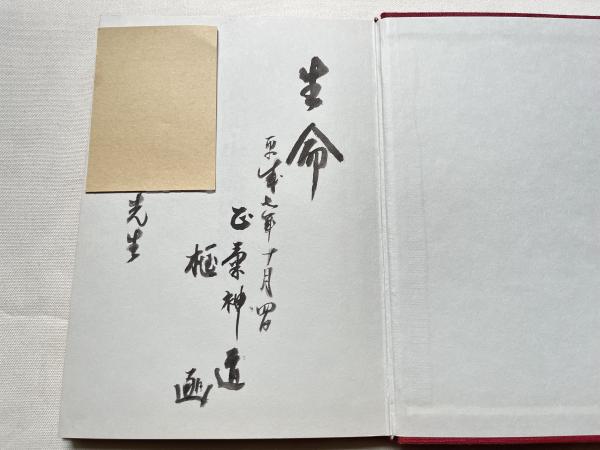 生命
平成七年十月四日
正氣神道
先生